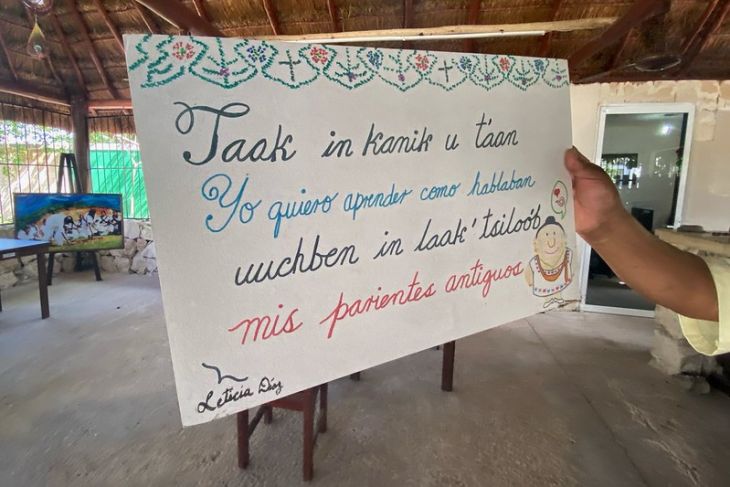 Taak in kanik u t'aan
Yo quiero aprender como hablaban
uuchben in laak'tsiloób
mis parientes antiguos
Leticia Díaz